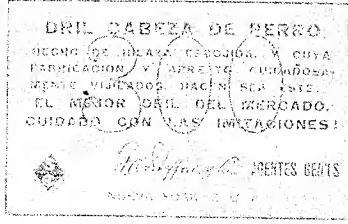 DRIL CABEZA DE PERRO.
HECHO DE HILAZA ESCOJIDA, Y CUYA
FABRICACION Y APRESTO CUIDADOSA-
MENTE VIJILADOS HACEN SEA ESTE,
EL MEJOR DRIL DEL MERCADO.
CUIDADO CON LAS IMITACIONES!
AGENTES GENTS
NUEVA YORK, E. U. A.